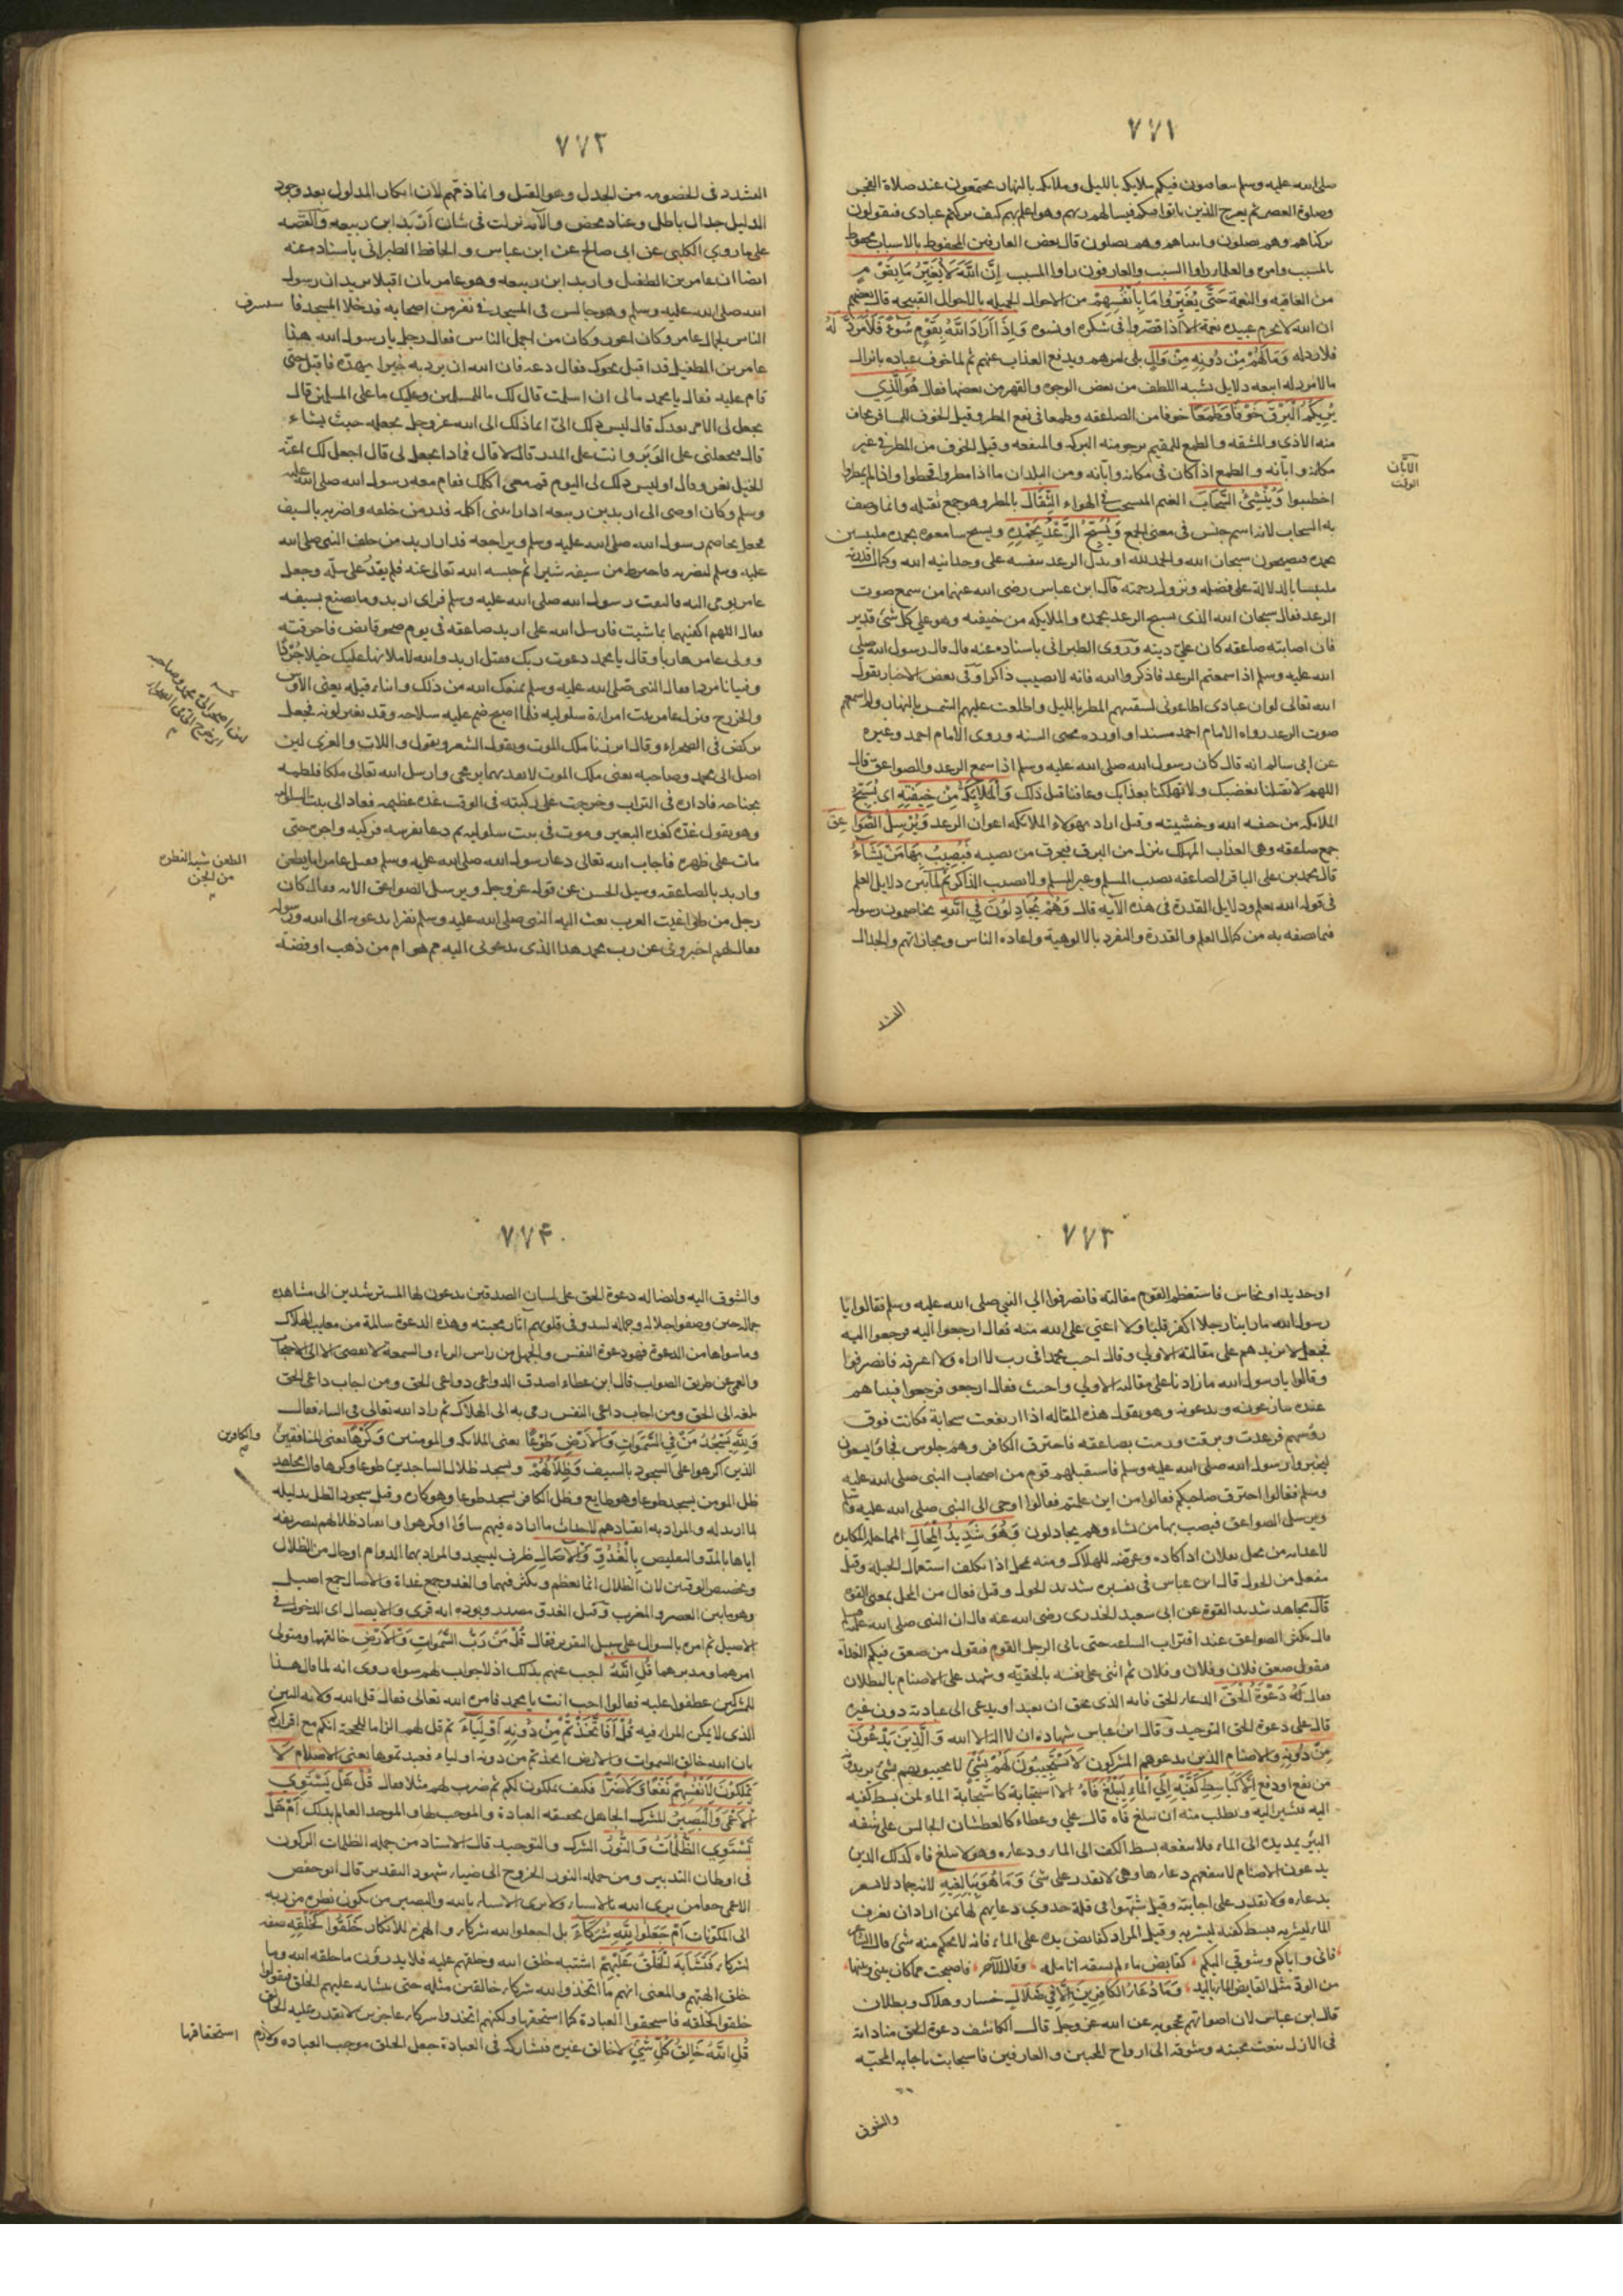 ٧٧١
صلى الله عليه وسلم يتعاقبون فيكم ملائكة بالليل وملائكة بالنهار يجتمعون عند صلاة الفجر
وصلوة العصر ثم يعرج الذين باتوا فيكم فيسألهم ربهم وهو اعلم بهم كيف تركتم عبادى فيقولون
تركناهم وهم يصلون واتيناهم وهم يصلون قال بعض العارفين المحفوظ بالاسباب محفوظ
بالمسبب وامره والعلماء راوا السبب والعارفون راوا المسبب اِنَّ اللهَ لَا يُغَيِّرُ مَا بِقَوْمٍ
من العافيه والنعمة حَتّٰى يُغَيِّرُوا مَا بِاَنْفُسِهِمْ من الاحوال الجميله بالاحوال القبيحه قال بعضهم
ان الله لا يحرم عبيده نعمة الا اذا قصروا فى شكره او نسوه وَاِذَا اَرَادَ اللهُ بِقَوْمٍ سُوْءً فَلَا مَرَدَّ لَهُ
فلا راد له وَمَا لَهُمْ مِنْ دُونِهِ مِنْ وَالٍ يلى امرهم ويدفع العذاب عنهم ثم لما خوف عباده بانزال
ما لا مرد له اتبعه دلايل تشبه اللطف من بعض الوجوه والقهر من بعضها فقال هُوَ الَّذِي
يُرِيكُمُ الْبَرْقَ خَوْفًا وَطَمَعًا خوفا من الصاعقه وطمعا فى نفع المطر وقيل الخوف للمسافر يخاف
منه الاذى والمشقه والطمع للمقيم يرجو منه البركه والمنفعه وقيل الخوف من المطر فى غير
مكانه وابانه والطمع اذا كان فى مكانه وابانه ومن البلدان ما اذا مطروا قحطوا واذا لم يمطروا
اخصبوا وَيُنْشِئُ السَّحَابَ الغيم المنسحب فى الهواء الثِّقَالَ بالمطر وهو جمع ثقيله وانما وصف
به السحاب لانه اسم جنس فى معنى الجمع وَيُسَبِّحُ الرَّعْدُ بِحَمْدِهِ ويسبح سامعوه بحمده ملتبسين
بحمده فيصيحون سبحان الله والحمد لله او يدل الرعد بنفسه على وحدانيه الله وكمال قدرته
ملتبسا بالدلالة على فضله ونزول رحمته قال ابن عباس رضى الله عنهما من سمع صوت
الرعد فقال سبحان الله الذى يسبح الرعد بحمده والملايكه من خيفته وهو على كل شئ قدير
فان اصابته صاعقه كان على ديته وروى الطبرانى باسناده عنه قال قال رسول الله صلى
الله عليه وسلم اذا سمعتم الرعد فاذكروا الله فانه لا يصيب ذاكرا وفى بعض الاخبار يقول
الله تعالى لو ان عبادى اطاعونى لسقيتهم المطر بالليل واطلعت عليهم الشمس بالنهار ولم اسمعهم
صوت الرعد رواه الامام احمد مسندا واورده محيى السنه وروى الامام احمد وغيره
عن ابى سالم انه قال كان رسول الله صلى الله عليه وسلم اذا سمع الرعد والصواعق قال
اللهم لا تقتلنا بغضبك ولا تهلكنا بعذابك وعافنا قبل ذلك وَالْمَلٰئِكَةُ مِنْ خِيفَتِهِ اى يسبح
الملائكه من خيفه الله وخشيته وقيل اراد بهولاء الملائكه اعوان الرعد وَيُرْسِلُ الصَّوَاعِقَ
جمع صاعقه وهى العذاب المهلك ينزل من البرق فيحرق من تصيبه فَيُصِيبُ بِهَا مَنْ يَشَآءُ
قال محمد بن على الباقر الصاعقه تصيب المسلم وغير المسلم ولا تصيب الذاكر ثم لما بين دلايل العلم
فى قوله الله يعلم ودلايل القدرة فى هذه الآيه قال وَهُمْ يُجَادِلُونَ فِي اللهِ يخاصمون رسوله
فيما يصفه به من كمال العلم والقدرة والتفرد بالالوهية واعاده الناس ومجازاتهم والجدال
الابّان
الوقت
التشدد
٧٧٢
التشدد فى الخصومه من الجدل وهو الفتل وانما ذمهم لان انكار المدلول بعد وجود
الدليل جدال باطل وعناد محض والآيه نزلت فى شان اربد ابن ربيعه والقصه
على ما روى الكلبى عن ابى صالح عن ابن عباس والحافظ الطبرانى باسناده عنه
ايضا ان عامر بن الطفيل واربد ابن ربيعه وهو عامريان اقبلا يريدان رسول
الله صلى الله عليه وسلم وهو جالس فى المسجد فى نفر من اصحابه فدخلا المسجد فا
الناس لجمال عامر وكان اعور وكان من اجمل الناس فقال رجل يا رسول الله هذا
عامر بن الطفيل قد اقبل نحوك فقال دعه فان الله ان يرد به خيرا يهده فاقبل حتى
قام عليه فقال يا محمد مالى ان اسلمت قال لك ما للمسلمين وعليك ما على المسلمين قال
تجعل لى الامر بعدك قال ليس ذلك الىّ انما ذلك الى الله عز وجل يجعله حيث يشاء
قال فتجعلنى على الوبر وانت على المدر قال لا قال فماذا تجعل لى قال اجعل لك اعنّة
الخيل تغزو قال اوليس ذلك لى اليوم قم معى اكلمك فقام معه رسول الله صلى الله عليه
وسلم وكان اوصى الى اربد بن ربيعه اذا رايتنى اكلمه فدر من خلفه واضربه بالسيف
فجعل يخاصم رسول الله صلى الله عليه وسلم ويراجعه فدار اربد من خلف النبى صلى الله
عليه وسلم ليضربه فاخترط من سيفه شبرا ثم حبسه الله تعالى عنه فلم يقدر على سله وجعل
عامر يومى اليه فالتفت رسول الله صلى الله عليه وسلم فراى اربد وما يصنع بسيفه
فقال اللهم اكفنيهما بما شيت فارسل الله على اربد صاعقه فى يوم صحو قايض فاحرقته
وولى عامر هاربا وقال يا محمد دعوت ربك فقتل اربد والله لاملانها عليك خيلا جردا
وفتيانا مردا فقال النبى صلى الله عليه وسلم يمنعك الله من ذلك وابناء قيله يعنى الاوس
والخزرج فنزل عامر بيت امراة سلوليه فلما اصبح ضم عليه سلاحه وقد تغير لونه فجعل
يركض فى الصحراء وقال ابرز يا ملك الموت ويقول الشعر ويقول واللات والعزى لين
اصل الى محمد وصاحبه يعنى ملك الموت لانفذنهما برمحى وارسل الله تعالى ملكا فلطمه
بجناحه فاداره فى التراب وخرجت على ركبته فى الوقت غده عظيمه فعاد الى بيت السلوليه
وهو يقول غدّه كغدة البعير وموت فى بيت سلوليه ثم دعا بفرسه فركبه واجرى حتى
مات على ظهره فاجاب الله تعالى دعا رسول الله صلى الله عليه وسلم فقتل عامرا بالطعن
واربد بالصاعقه وسيل الحسن عن قوله عز وجل ويرسل الصواعق الايه فقال كان
رجل من طواغيت العرب بعث اليه النبى صلى الله عليه وسلم نفرا يدعونه الى الله ورسوله
فقال لهم اخبرونى عن رب محمد هذا الذى تدعونى اليه مم هو ام من ذهب او فضة
الطعن شبه الطعن
من الجن
٧٧٣
او حديد او نحاس فاستعظم القوم مقالته فانصرفوا الى النبى صلى الله عليه وسلم فقالوا يا
رسول الله ما راينا رجلا اكفر قلبا ولا اعتى على الله منه فقال ارجعوا اليه فرجعوا اليه
فجعل لا يزيدهم على مقالته الاولى وقال اجيب محمدا فى رب لا اراه ولا اعرفه فانصرفوا
وقالوا يا رسول الله ما زادنا على مقالته الاولى واخبث فقال ارجعوا فرجعوا فبينا هم
عنده ينازعونه ويدعونه وهو يقول هذه المقاله اذ ارتفعت سحابة فكانت فوق
رؤسهم فرعدت وبرقت ورمت بصاعقه فاحترق الكافر وهم جلوس فجاؤا يسعون
ليخبروا رسول الله صلى الله عليه وسلم فاستقبلهم قوم من اصحاب النبى صلى الله عليه
وسلم فقالوا احترق صاحبكم فقالوا من اين علمتم فقالوا اوحى الى النبى صلى الله عليه وسلم
ويرسل الصواعق فيصيب بها من يشاء وهم يجادلون وَهُوَ شَدِيدُ الْمِحَالِ المماحله المكايده
لاعدايه من محل بفلان اذا كاده وعرضه للهلاك ومنه تمحل اذا تكلف استعمال الحيله وقيل
مفعل من الحول قال ابن عباس فى تفسيره شديد الحول وقيل فعال من المحل بمعنى القوه
قال مجاهد شديد القوة عن ابى سعيد الخدرى رضى الله عنه قال ان النبى صلى الله عليه وسلم
قال تكثر الصواعق عند اقتراب الساعه حتى ياتى الرجل القوم فيقول من صعق فيكم الغداة
فيقول صعق فلان وفلان وفلان ثم اثنى على نفسه بالحقيّه وشهد على الاصنام بالبطلان
فقال لَهُ دَعْوَةُ الْحَقِّ الدعاء الحق فانه الذى يحق ان يعبد او يدعى الى عبادته دون غيره
قال على دعوة الحق التوحيد وقال ابن عباس شهادة ان لا اله الا الله وَالَّذِينَ يَدْعُونَ
مِنْ دُونِهِ والاصنام الذين يدعوهم المشركون لَا يَسْتَجِيبُونَ لَهُمْ بِشَيْءٍ لا يجيبونهم شئ يريدونه
من نفع او دفع اِلَّا كَبَاسِطِ كَفَّيْهِ اِلَى الْمَاءِ لِيَبْلُغَ فَاهُ الا استجابة كاستجابة الماء لمن بسط كفيه
اليه يشير اليه ويطلب منه ان يبلغ فاه قال على وعطاء كالعطشان الجالس على شفه
البئر يمد يده الى الماء فلا ينفعه بسط الكف الى الماء ودعاؤه وهو لا يبلغ فاه كذلك الذين
يدعون الاصنام لا ينفعهم دعاؤها وهى لا تقدر على شئ وَمَا هُوَ بِبَالِغِهِ لانه جماد لا يشعر
بدعائه ولا يقدر على اجابته وقيل شبهوا فى قلة جدوى دعايهم لها بمن اراد ان يغرف
الماء ليشربه فبسط كفيه ليشربه وقيل المراد كقابض يده على الماء فانه لا يحكم منه شئ قال الشاعر
فانى واياكم وشوقى اليكم كقابض ماء لم تسقه انامله وقال الآخر فاصبحت مما كان بينى وبينها
من الود مثل القابض الماء باليد وَمَا دُعَاءُ الْكَافِرِينَ اِلَّا فِي ضَلَالٍ خسار وهلاك وبطلان
قال ابن عباس لان اصواتهم محجوبه عن الله عز وجل قال الكاشف دعوة الحق مناداته
فى الازل بنعت محبته وشوقه الى ارواح المحبين والعارفين فاستجابت باجابه المحبّه
والشوق
٧٧٤
والشوق اليه وايضا له دعوة الحق على لسان الصديقين يدعون لها المسترشدين الى مشاهده
جماله حين وصفوا جلاله وجماله ليبدو فى قلوبهم آثار محبته وهذه الدعوة سالمة من معايب الهلاك
وما سواها من الدعوة فهو دعوة النفس والجهل من راس الرياء والسمعة لا تفضى الا الى الاحجاب
والعمى عن طريق الصواب قال ابن عطاء اصدق الدواعى دواعى الحق ومن اجاب داعى الحق
بلغه الى الحق ومن اجاب داعى النفس رمى به الى الهلاك ثم زاد الله تعالى فى البيان فقال
وَلِلّٰهِ يَسْجُدُ مَنْ فِي السَّمٰوَاتِ وَالْاَرْضِ طَوْعًا يعنى الملائكه والمومنين وَكَرْهًا يعنى المنافقين
والكافرين
الذين اكرهوا على السجود بالسيف وَظِلَالُهُمْ ويسجد ظلال الساجدين طوعا وكرها قال مجاهد
ظل المومن يسجد طوعا وهو طايع وظل الكافر يسجد طوعا وهو كاره وقيل سجود الظل تذليله
لما اريد له والمراد به انقيادهم لاحداث ما اراده فيهم شاؤا او كرهوا وانقياد ظلالهم لتصريفه
اياها بالمد والتقليص بِالْغُدُوِّ وَالْاٰصَالِ ظرف ليسجد والمراد بهما الدوام او حال من الظلال
وتخصيص الوقتين لان الظلال انما تعظم وتكثر فيهما والغدو جمع غداة والآصال جمع اصيل
وهو ما بين العصر والمغرب وقيل الغدو مصدر ويؤيده انه قرى والايصال اى الدخول فى
الاصيل ثم امره بالسوال على سبيل التقرير فقال قُلْ مَنْ رَبُّ السَّمٰوَاتِ وَالْاَرْضِ خالقهما ومتولى
امرهما ومدبرهما قُلِ اللهُ اجب عنهم بذلك اذ لا جواب لهم سواه روى انه لما قال هذا
للمشركين عطفوا عليه فقالوا اجب انت يا محمد فامره الله تعالى فقال قل الله ولانه البين
الذى لا يمكن المراء فيه قُلْ اَفَاتَّخَذْتُمْ مِنْ دُونِهِ اَوْلِيَاءَ ثم قل لهم الزاما للحجة انكم مع اقراركم
بان الله خالق السموات والارض اتخذتم من دونه اولياء فعبدتموها يعنى الاصنام لَا
يَمْلِكُونَ لِاَنْفُسِهِمْ نَفْعًا وَلَا ضَرًّا فكيف يملكون لكم ثم ضرب لهم مثلا فقال قُلْ هَلْ يَسْتَوِي
الْاَعْمٰى وَالْبَصِيرُ المشرك الجاهل بحقيقه العبادة والموجب لها والموحد العالم بذلك اَمْ هَلْ
تَسْتَوِي الظُّلُمَاتُ وَالنُّورُ الشرك والتوحيد قال الاستاد من جمله الظلمات الركون
فى اوطان التدبير ومن جمله النور الخروج الى ضياء شهود التقدير قال ابو حفص
الاعمى حقا من يرى الله بالاشياء ولا يرى الاشياء بالله والبصير من يكون نظره من ربه
الى المكونات اَمْ جَعَلُوا لِلّٰهِ شُرَكَاءَ بل اجعلوا لله شركاء والهمزه للانكار خَلَقُوا كَخَلْقِهِ صفه
لشركاء فَتَشَابَهَ الْخَلْقُ عَلَيْهِمْ اشتبه خلق الله وخلقهم عليه فلا يدرون ما خلقه الله وما
خلق الهتهم والمعنى انهم ما اتخذوا لله شركاء خالقين مثله حتى يتشابه عليهم الخلق فيقولوا
خلقوا كخلقه فاستحقوا العبادة كما استحقها ولكنهم اتخذوا شركاء عاجزين لا تقدر عليه الخلق
قُلِ اللهُ خَالِقُ كُلِّ شَيْءٍ لا خالق غيره فيشاركه فى العبادة جعل الخلق موجب العباده ولازم
استحقاقها